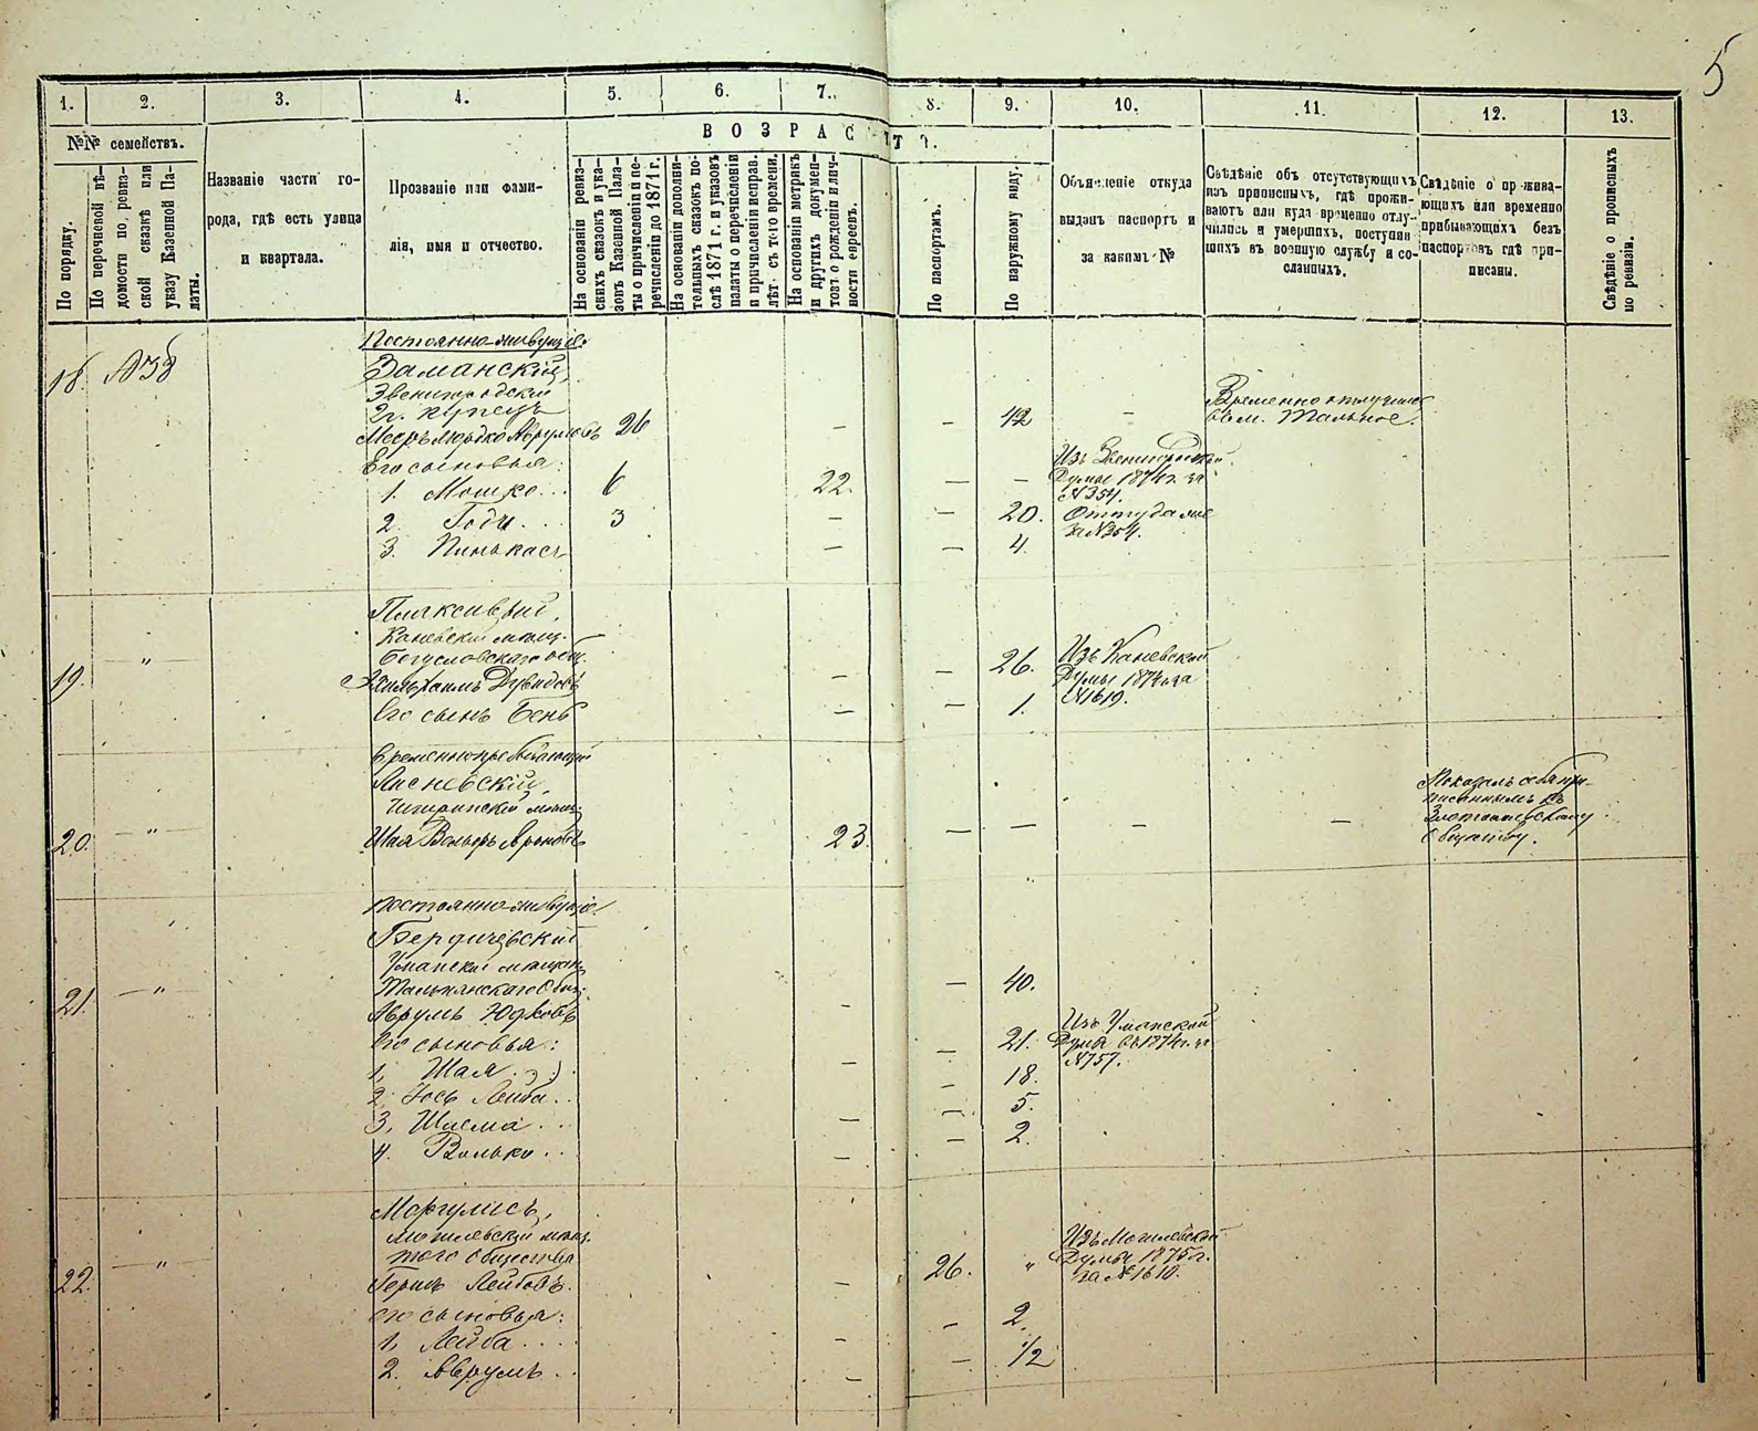 5
1. 2. 3. 4. 5. 6. 7. 8. 9. 10. 11. 12. 13.
№№ семействъ.
По порядку.
По перечневой вѣ-
домости по ревиз-
ской сказкѣ или
указу Казенной Па-
латы.
Названіе части го-
рода, гдѣ есть улица
и квартала.
Прозваніе или фами-
лія, имя и отчество.
ВОЗРАСТЪ.
На основаніи ревиз-
скихъ сказокъ и ука-
зовъ Казенной Пала-
ты о причисленіи и пе-
речисленіи до 1871 г.
На основаніи дополни-
тельныхъ сказокъ по-
слѣ 1871 г. и указовъ
палаты о перечисленіи
и причисленіи исправ.
лѣт. съ того времени.
На основаніи метрикъ
и другихъ докумен-
товъ о рожденіи и лич-
ности евреевъ.
По паспортамъ.
По наружному виду.
Объявленіе откуда
выданъ паспортъ и
за какимъ №
Свѣдѣніе объ отсутствующихъ
изъ приписныхъ, гдѣ прожи-
ваютъ или куда временно отлу-
чились и умершихъ, поступив
шихъ въ военную службу и со-
сланныхъ.
Свѣдѣніе о прожива-
ющихъ или временно
прибывающихъ безъ
паспортовъ гдѣ при-
писаны.
Свѣдѣніе о прописныхъ
по ревизіи.
Постоянно-живущіе:
18. №38 Заманскій,
Звенигородскій
2г. купецъ
Мееръ Мордко Аврумовъ 26 — — 42 — Временно отлучился
въ м. Тальное.
Его сыновья:
1. Мошко... 6 22. — — Изъ Звенигородской
Думы 1874 г. за
№354.
2. Годи... 3 — — 20. Оттуда же
за №354.
3. Пинькасъ — — 4.
Плаксивый,
Каневскій мѣщ.
Богуславскаго общ.
19. — " — Дувидовъ — — 26. Изъ Каневской
Думы 1874 за
№1619.
Его сынъ Бень — — 1.
Временно пребывающій
Лисневскій,
Чигиринскій мѣщ.
20. — " — Шая Вольфъ Ароновъ 23. — — — — Показалъ себя при-
писаннымъ къ
Златопольскому
Обществу.
Постоянно-живущіе.
Бердичевскій
Уманскій мѣщан.
21. — " — Тальнянскаго Общ.
Аврумъ Юдковъ — — 40.
Его сыновья:
1, Шая... — — 21. Изъ Уманской
Думы въ 1874 г. за
№757.
2. Іось Лейба.. — 18.
3, Шлема.. — — 5.
4. Волько.. — — 2.
Моргулисъ,
Могилевскій мѣщ.
того Общества
22. — " — Гершъ Лейбовъ. — 26. " Изъ Могилевской
Думы 1875 г.
за №1610.
его сыновья:
1, Лейба.... — — 2.
2. Аврумъ.. — — 1/2